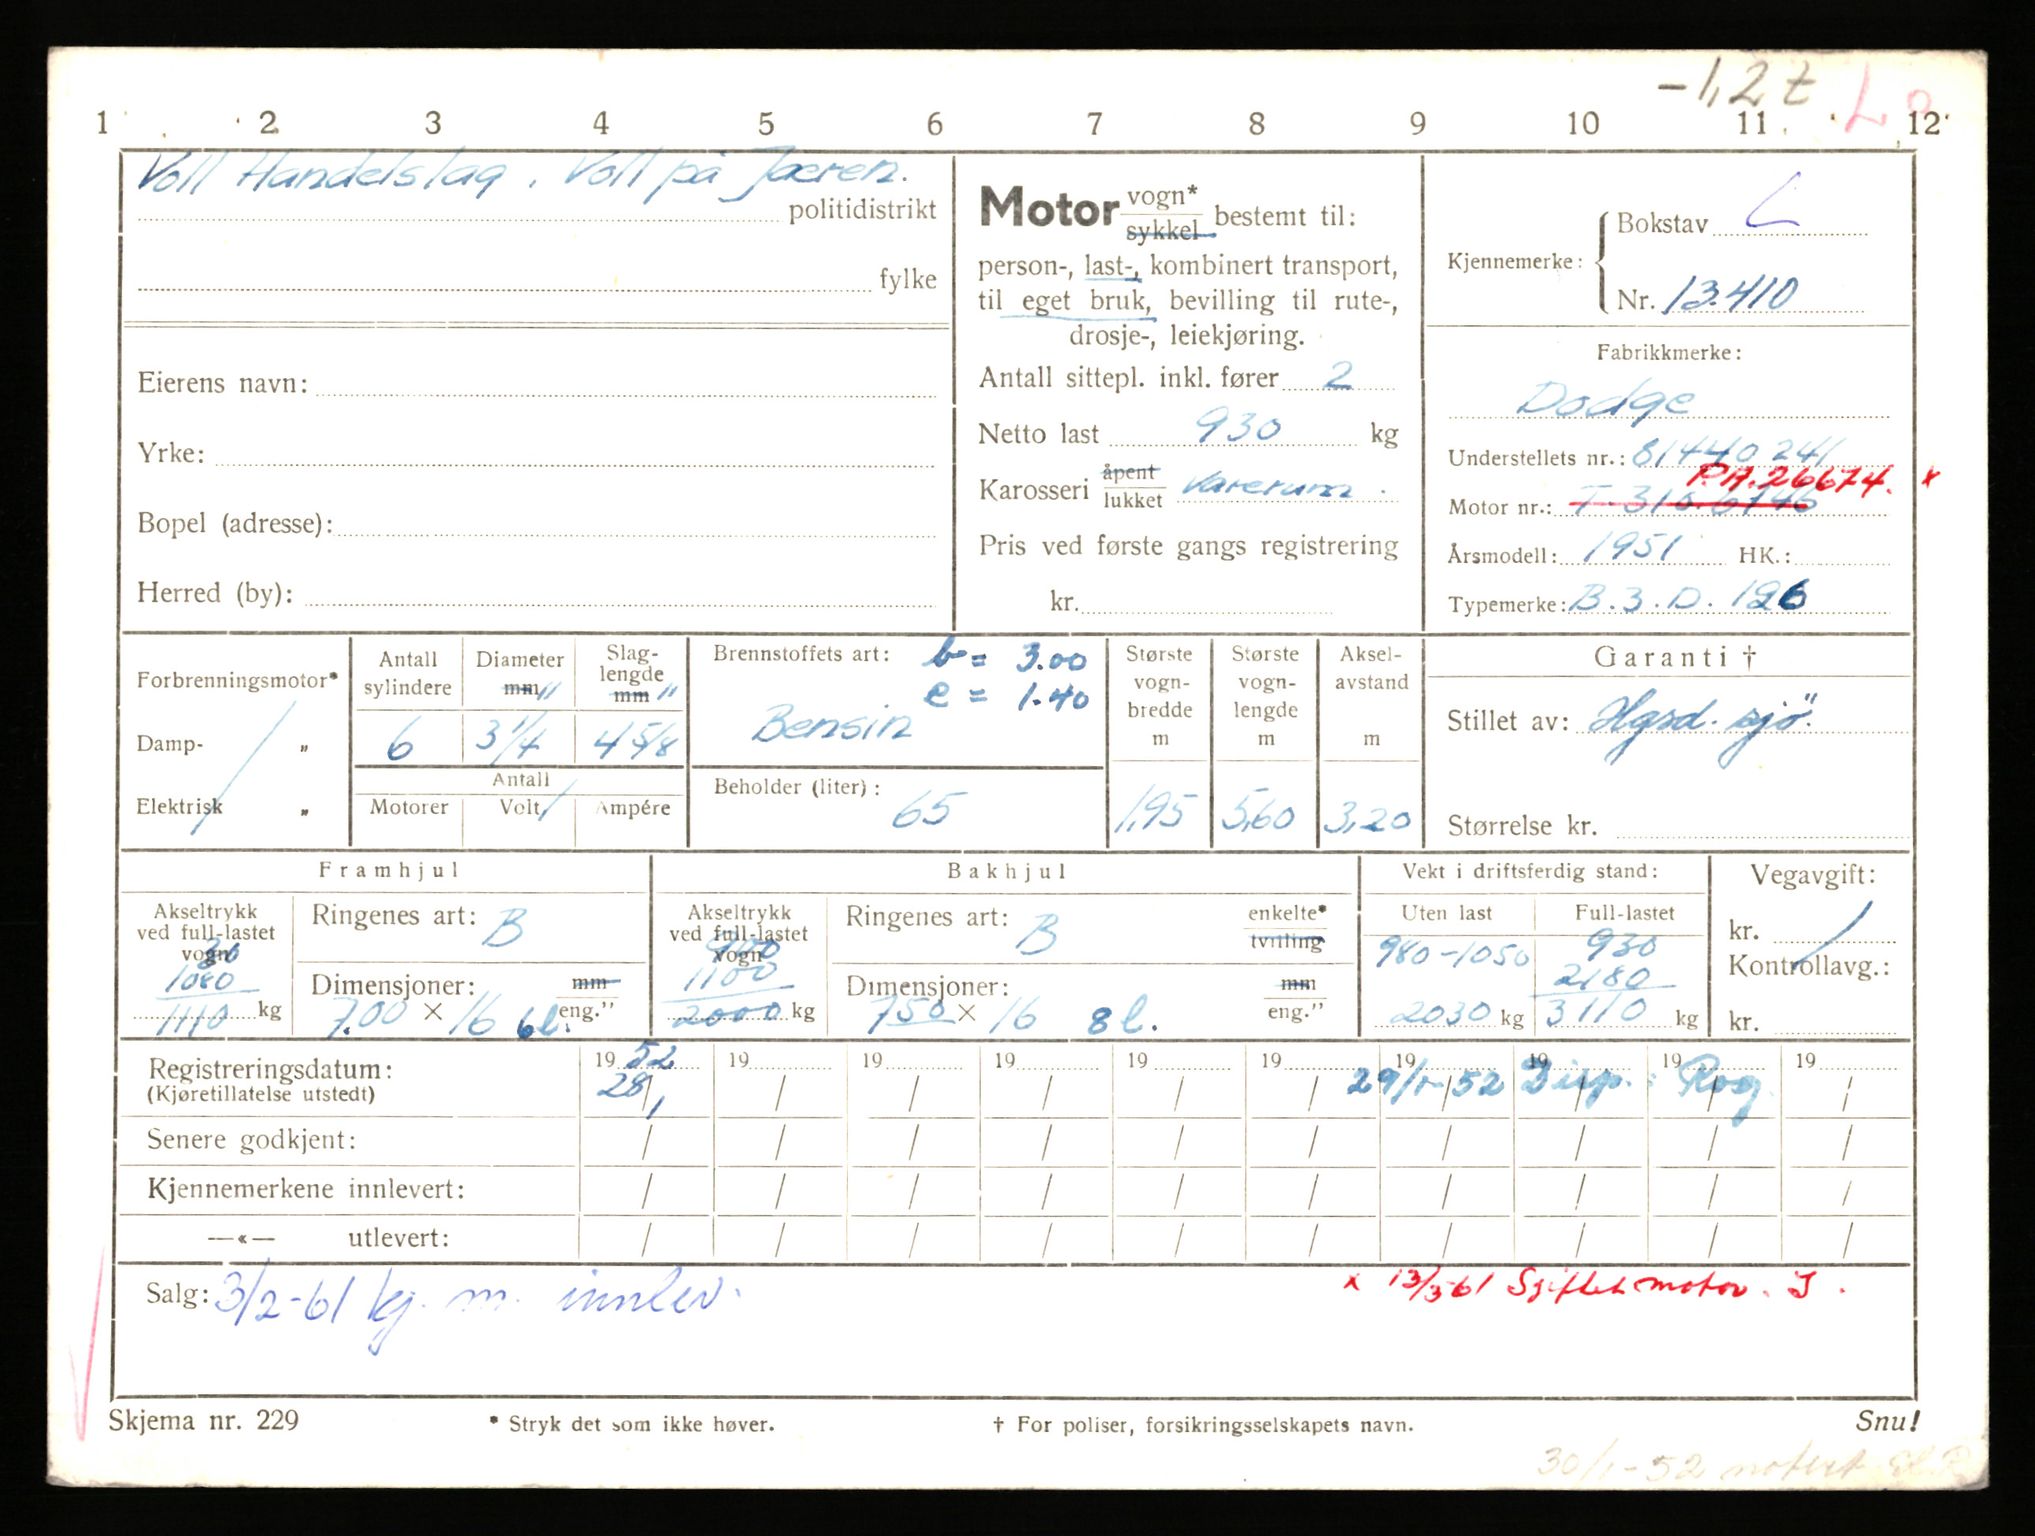 -1,2 t L
1 2 3 4 5 6 7 8 9 10 11 12
Voll Handelslag, Voll på Jæren.
politidistrikt
fylke
Eierens navn:
Yrke:
Bopel (adresse):
Herred (by):
Motor vogn* sykkel bestemt til:
person-, last-, kombinert transport,
til eget bruk, bevilling til rute-,
drosje-, leiekjøring.
Antall sittepl. inkl. fører 2
Netto last 930 kg
Karosseri åpent lukket Varerum.
Pris ved første gangs registrering
kr.
Kjennemerke: Bokstav L
Nr. 13.410
Fabrikkmerke:
Dodge
Understellets nr.: 81440241
P.A.26674. x
Motor nr.: T.316.6746
Årsmodell: 1951 HK.:
Typemerke: B.3.D.126
Forbrenningsmotor*
Damp- „
Elektrisk „
Antall sylindere
6
Diameter mm "
3 1/4
Slaglengde mm "
4 5/8
Antall
Motorer Volt Ampére
Brennstoffets art: b = 3.00
e = 1.40
Bensin
Beholder (liter):
65
Største vogn-bredde m
1,95
Største vogn-lengde m
5,60
Aksel-avstand m
3,20
Garanti †
Stillet av: Hgsd. sjö.
Størrelse kr.
Framhjul
Akseltrykk
ved full-lastet
vogn 30
1080
1110 kg
Ringenes art: B
Dimensjoner: mm
7.00 × 16 6 l. eng."
Bakhjul
Akseltrykk
ved full-lastet
vogn 900
1100
2000 kg
Ringenes art: B enkelte* tvilling
Dimensjoner: mm
750 × 16 8 l. eng."
Vekt i driftsferdig stand:
Uten last Full-lastet
980-1050 930
2180
2030 kg 3110 kg
Vegavgift:
kr.
Kontrollavg.:
kr.
Registreringsdatum: 19 52 19 19 19 19 19 19 19 19 19
(Kjøretillatelse utstedt) 28/1 29/1-52 Disp. : Rog.
Senere godkjent:
Kjennemerkene innlevert:
—«— utlevert:
Salg: 3/2-61 kj. m. innlev.
x 13/3 61 Skiftet motor. J.
Skjema nr. 229 * Stryk det som ikke høver. † For poliser, forsikringsselskapets navn. Snu!
30/1-52 notert